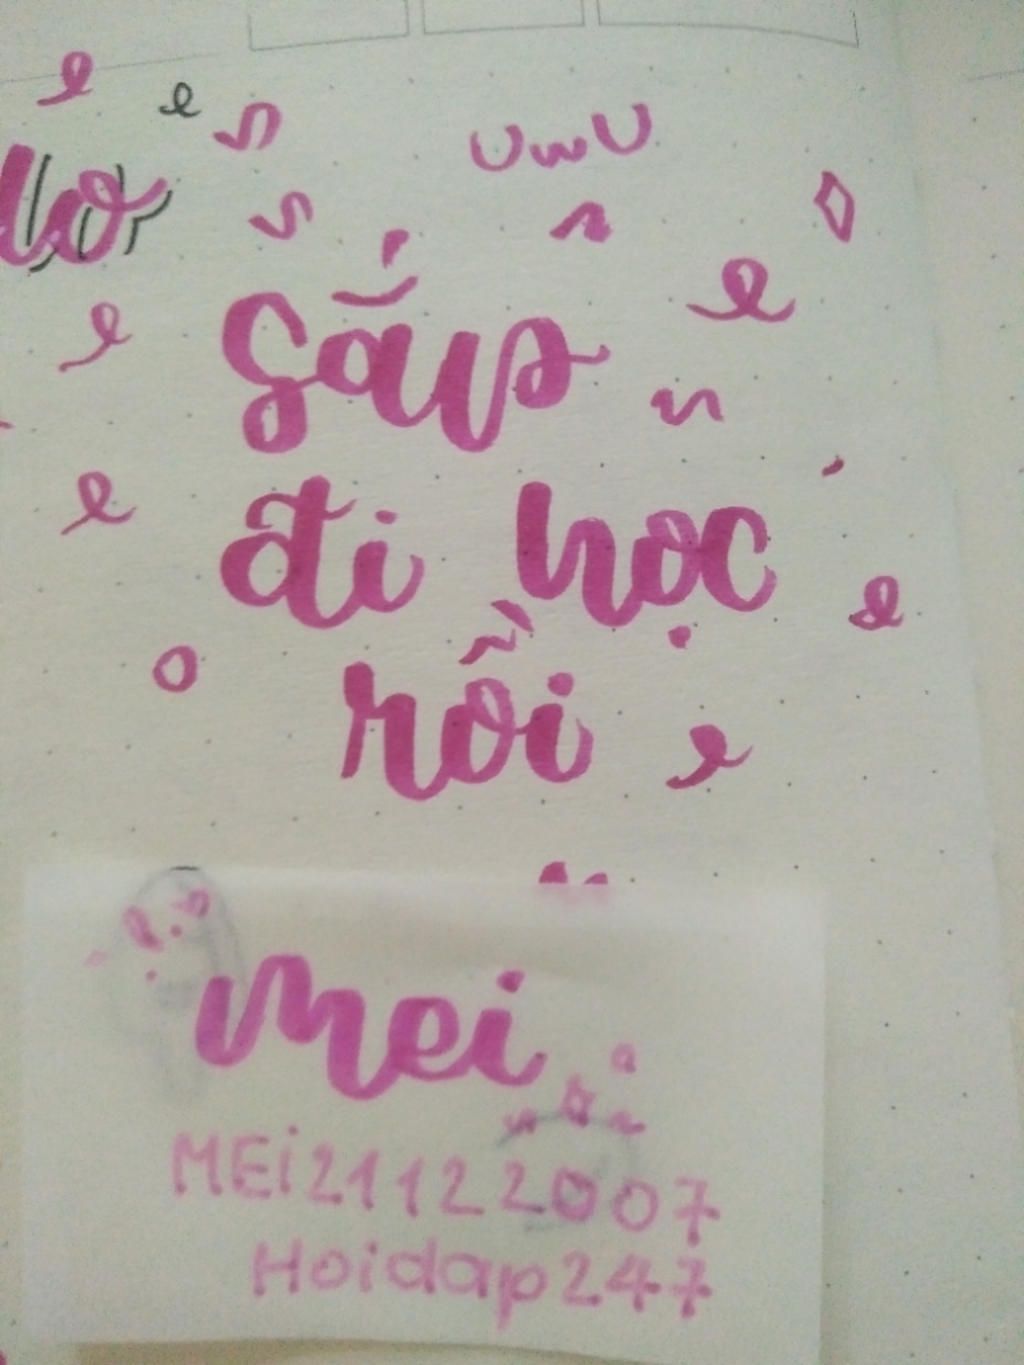 UwU
Sắp
đi học
rồi
Mei
MEi21122007
Hoidap247